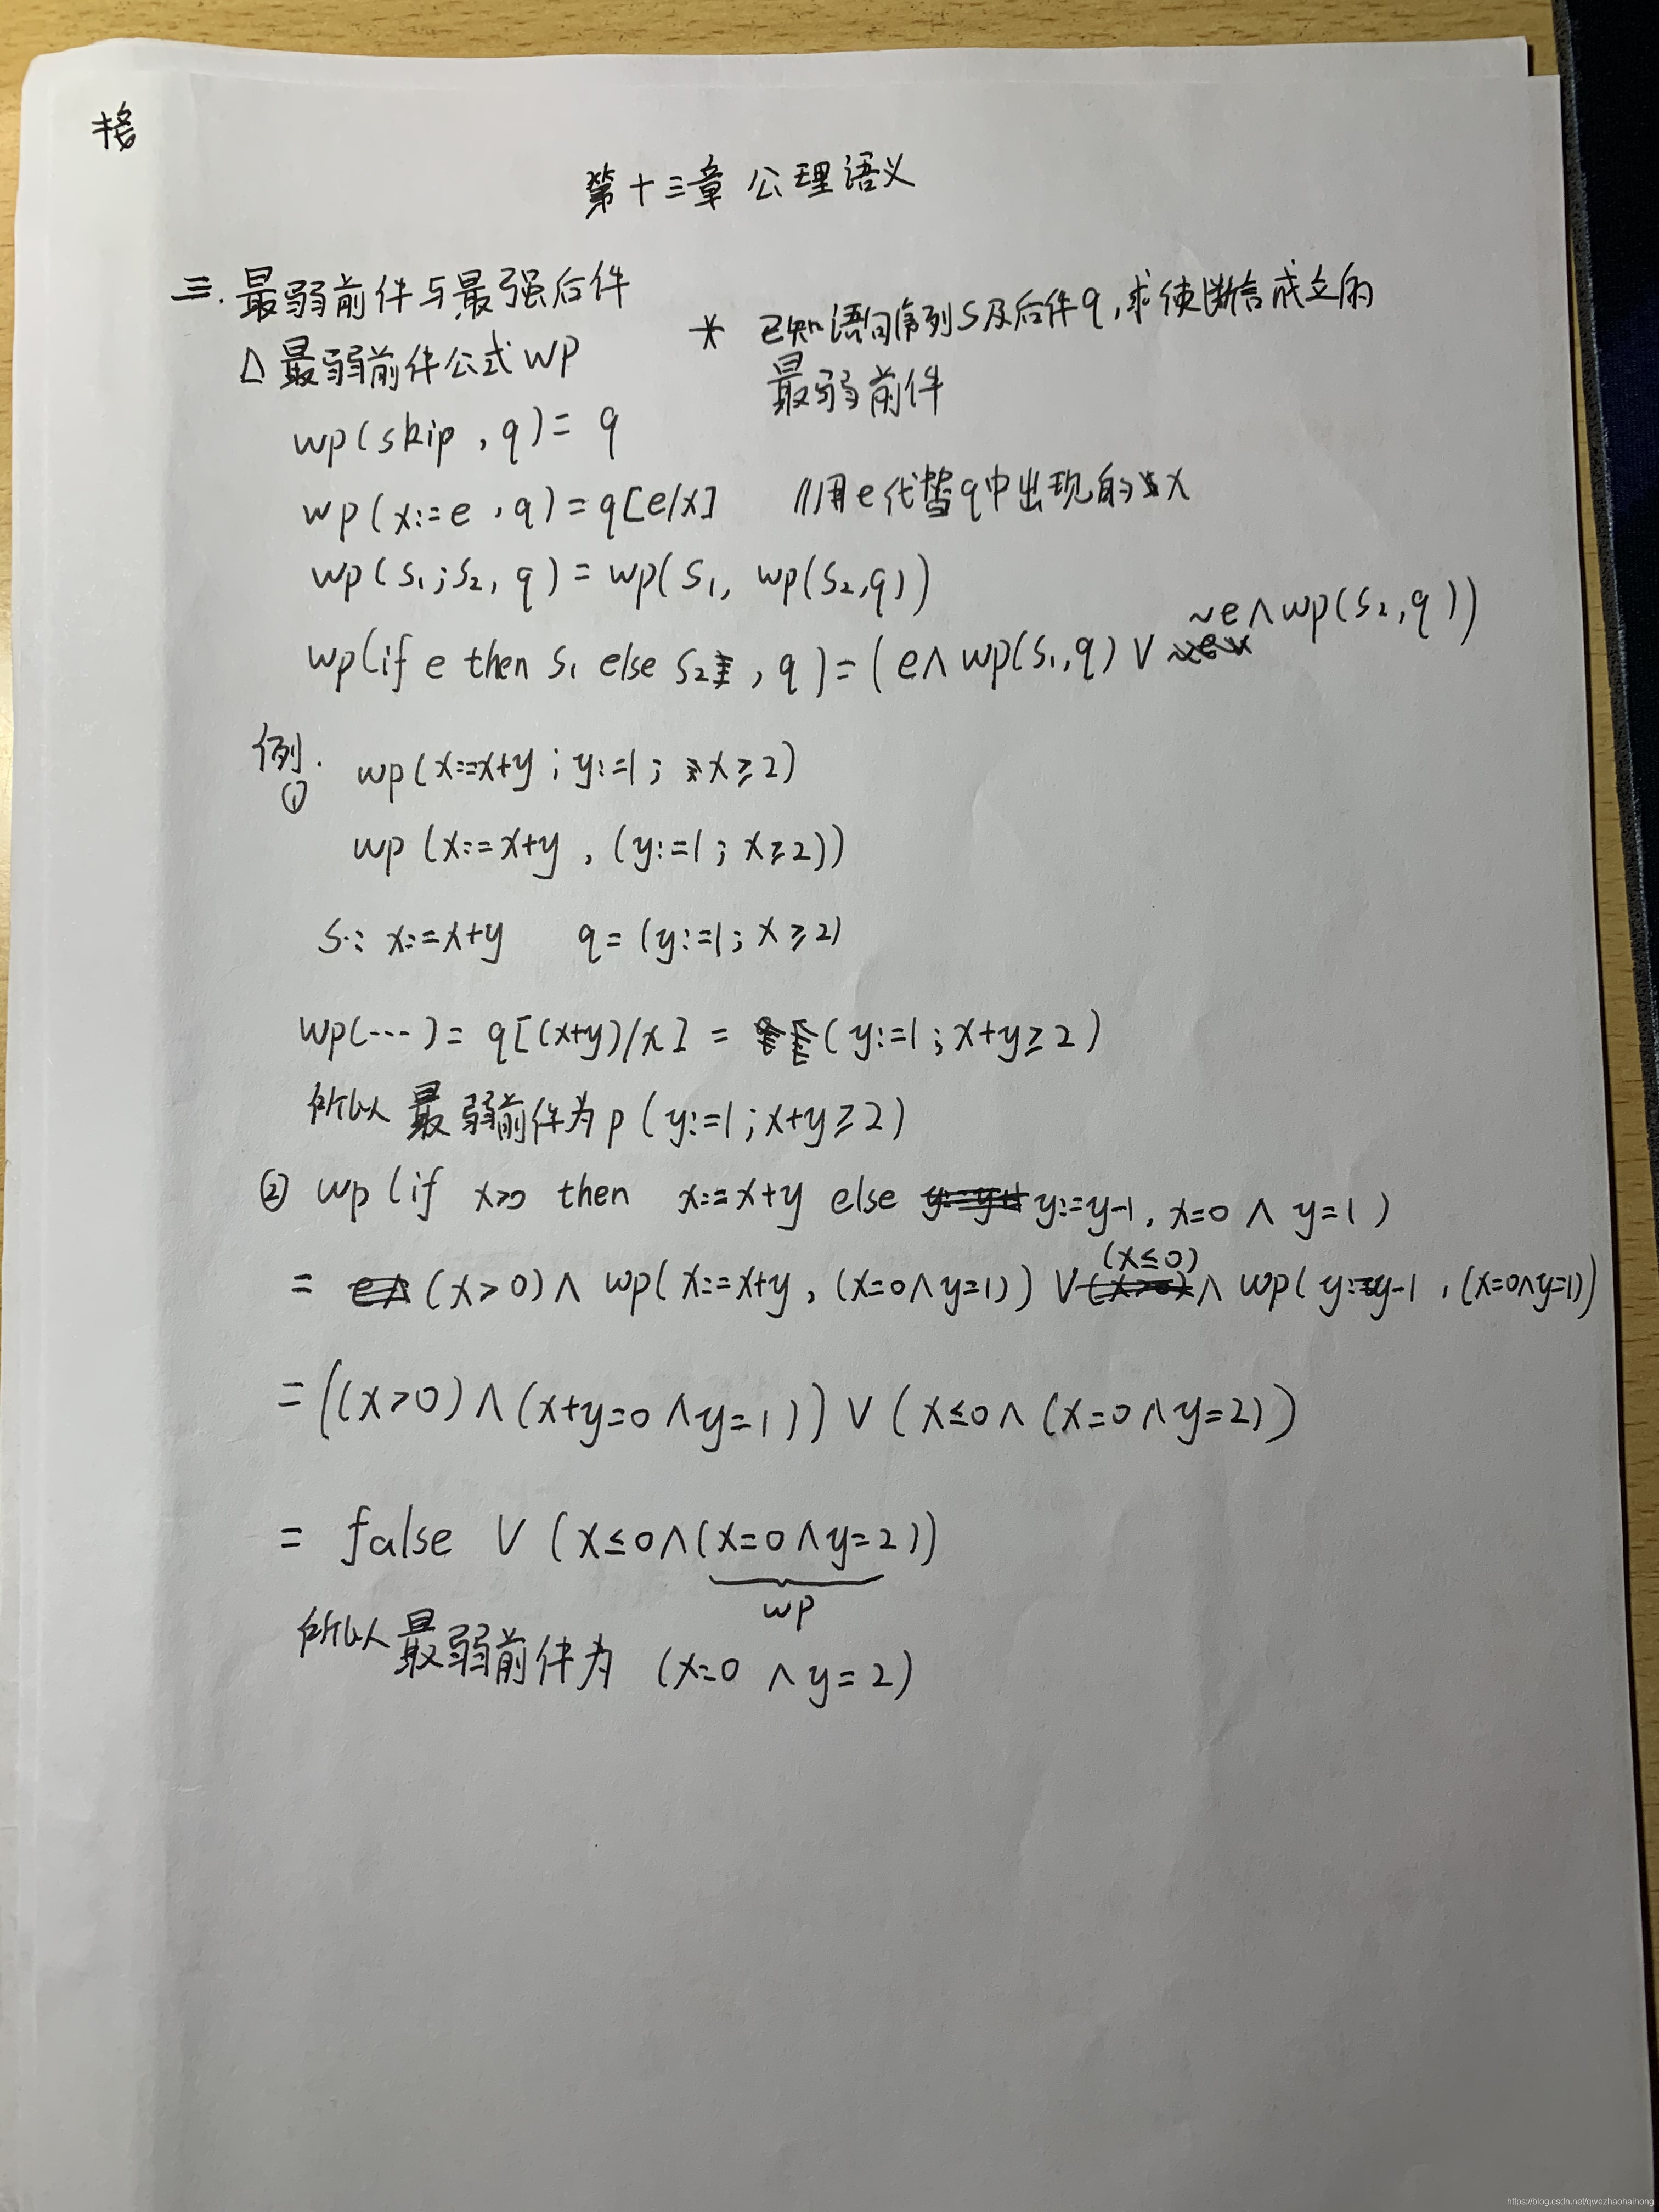 格
第十三章 公理语义
三. 最弱前件与最强后件
* 已知语句序列S及后件q,求使断言成立的
最弱前件
△ 最弱前件公式 wp
wp(skip , q) = q
wp(x:=e , q) = q[e/x] //用e代替q中出现的x
wp(S₁;S₂, q) = wp(S₁, wp(S₂,q))
wp(if e then S₁ else S₂ , q) = (e∧wp(S₁,q) ∨ ~e∧wp(S₂,q))
例.
① wp(x:=x+y ; y:=1 ; x≥2)
wp (x:=x+y , (y:=1 ; x≥2))
S: x:=x+y q= (y:=1; x≥2)
wp(---) = q[(x+y)/x] = (y:=1 ; x+y≥2)
所以 最弱前件为 p (y:=1 ; x+y≥2)
② wp (if x>0 then x:=x+y else y:=y-1, x=0 ∧ y=1)
= (x>0)∧ wp(x:=x+y, (x=0∧y=1)) ∨ (x≤0) ∧ wp(y:=y-1 , (x=0∧y=1))
= ((x>0)∧(x+y=0∧y=1)) ∨ (x≤0∧(x=0∧y=2))
= false ∨ (x≤0∧(x=0∧y=2))
wp
所以 最弱前件为 (x=0 ∧ y=2)
https://blog.csdn.net/qwezhaohaihong